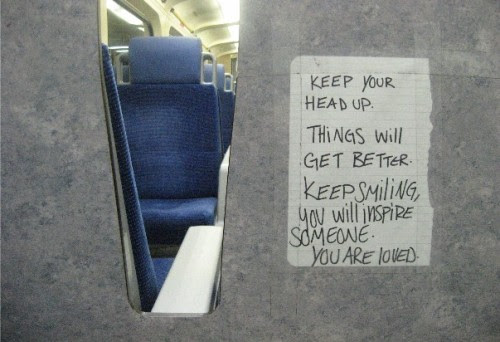 KEEP YOUR
HEAD UP.
THINGS Will
GET BETTER.
KEEP SMiliNG,
YOU Will INSPIRE
SOMEONE.
YOU ARE lOVED.